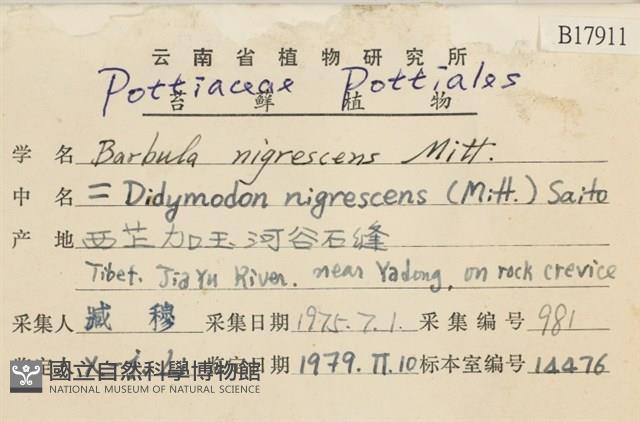 B17911
云南省植物研究所
Pottiaceae Pottiales
苔鲜植物
学名 Barbula nigrescens Mitt.
中名 = Didymodon nigrescens (Mitt.) Saito
产地 西芷加玉河谷石缝
Tibet. Jia Yu River. near Yadong, on rock crevice
采集人 臧穆 采集日期 1975.7.1. 采集编号 981
鉴定日期 1979.Ⅱ.10 标本室编号 14476
國立自然科學博物館
NATIONAL MUSEUM OF NATURAL SCIENCE